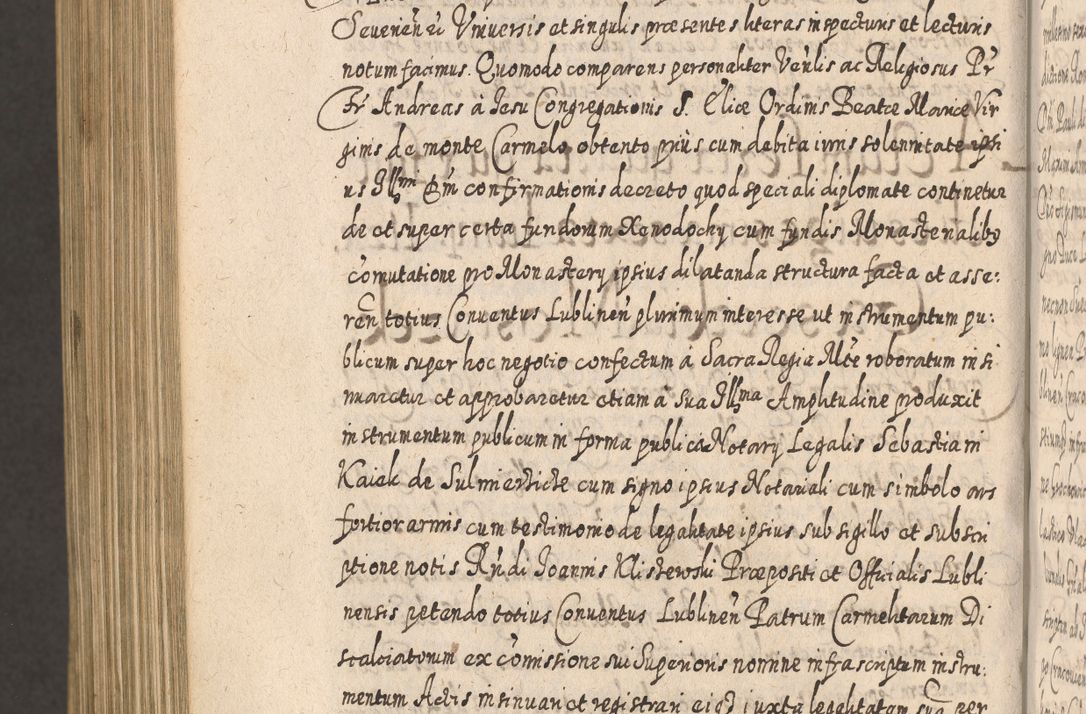 Severien̄ ei Universis et singulis præsentes literas inspecturis et lecturis
notum facimus. Quomodo comparens personaliter Vēn̄lis ac Religiosus Pr̄
Fr̄ Andreas à Jesu Congregationis S. Eliæ Ordinis Beatæ Mariæ Vir
ginis de monte Carmelo, obtento priùs cum debita iuris solennitate ipsi
us Illmi Dni confirmationis decreto quod speciali diplomate continetur
de et super certa fundorum Xenodochy cum fundis Monasterialibȝ
cōmutatione pro Monastery ipsius dilatanda structura facta et asse:
ren̄ totius Conventus Lublinen̄ plurimum interesse ut instrumentum pu:
blicum super hoc negotio confectum a Sacra Regia Mtē roboratum insi
nuaretur et approbaretur etiam à sua Illma Amplitudine produxit
instrumentum publicum in forma publica Notary Legalis Sebastiani
Kaiek de Sulmierticze cum signo ipsius Notariali cum simbolo ars
fortior armis cum testimonio de legalitate ipsius sub sigillo et subscri
ptione notis Rn̄di Joannis Kliszewski Præpositi et Officialis Lubli
nensis petendo totius Conventus Lublinen̄ Patrum Carmelitarum Di
scalciatorum ex cōmissione sui Superioris nomine infrascriptum instru:
mentum Actis insinuari et registrari eiqȝ iuxta legalitatem suam per